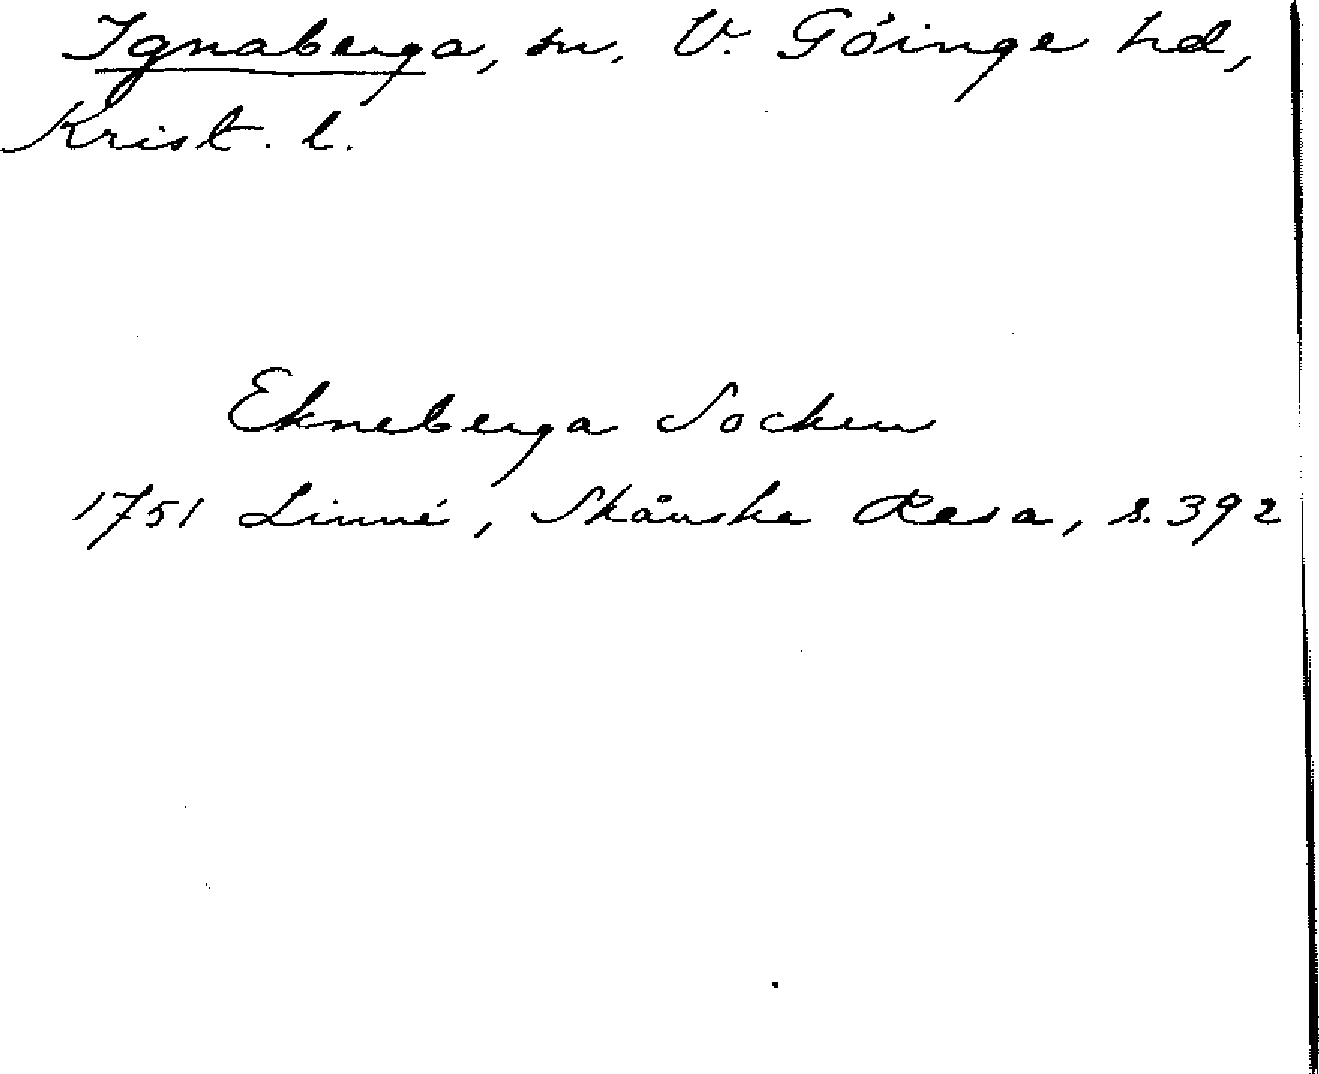 Ignaberga, sn, V. Göinge hd,
Krist. l.
Ekneberga Socken
1751 Linné, Skånske Resa, s. 392